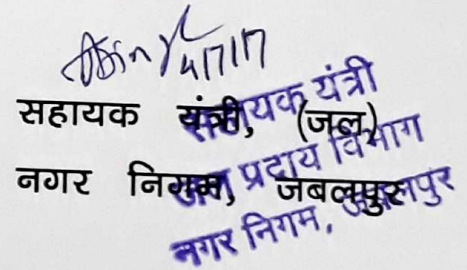 4/7/17
सहायक यंत्री, (जल)
नगर निगम, जबलपुर
सहायक यंत्री
जल प्रदाय विभाग
नगर निगम, जबलपुर